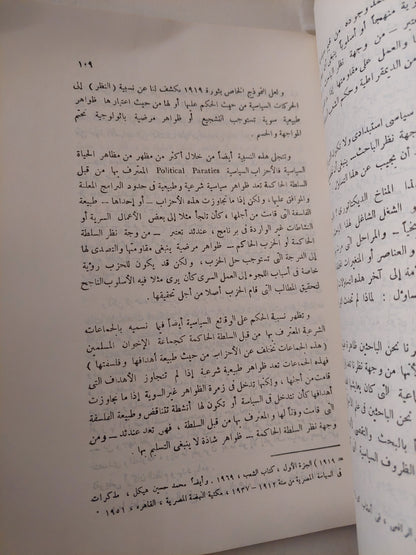 ١٠٩
ولعل النموذج الخاص بثورة ١٩١٩ يكشف لنا عن نسبية (النظر) إلى
الحركات السياسية من حيث الحكم عليها أو لها من حيث اعتبارها ظواهر
طبيعية سوية تستوجب التشجيع أو ظواهر مرضية باثولوجية تحتم
المواجهة والحسم .
وتتجلى هذه النسبية أيضاً من خلال أكثر من مظهر من مظاهر الحياة
السياسية فالأحزاب السياسية Political Paraties المعترف بها من قبل
السلطة الحاكمة تعد ظواهر سياسية شرعية وطبيعية في حدود البرامج المعلنة
والموافق عليها ، ولكن إذا ما تجاوزت هذه الأحزاب _ أو إحداها _ طبيعة
الفلسفة التي قامت من أجلها كأن تلجأ مثلا إلى بعض الأعمال السرية أو
النشاطات غير الواردة في برنامج ، عندئذ تعتبر _ من وجهة نظر السلطة
الحاكمة أو الحزب الحاكم _ ظواهر مرضية ينبغي مقاومتها والتصدي لها
إلى الدرجة التي تستوجب حل الحزب ، ولكن قد يكون للحزب رؤية
خاصة في أسباب اللجوء إلى العمل السري كأن يرى مثلا فيه الأسلوب الناجح
لتحقيق المطالب التي قام الحزب أصلا من أجل تحقيقها .
وتظهر نسبية الحكم على الوقائع السياسية أيضاً فيما نسميه بالجماعات
الشرعية المعترف بها من قبل السلطة الحاكمة كجماعة الإخوان المسلمين
( هذه الجماعات تختلف عن الأحزاب من حيث طبيعة أهدافها وفلسفتها )
فهذه الجماعات تعد ظواهر طبيعية شرعية إذا لم تتجاوز الأهداف التي
قامت من أجلها ، ولكنها تدخل في زمرة الظواهر غير السوية إذا ما تجاوزت
أهدافها كأن تتدخل في السياسة أو تكون لها أنشطة تتناقض وطبيعة الفلسفة
التي قامت وفقاً لها والمعترف بها من قبل السلطة ، فهي تعد عندئذ _ ومن
وجهة نظر السلطة الحاكمة _ ظواهر شاذة لا ينبغي التسليم بها .
= ١٩١٩ ) الجزء الأول ، كتاب الشعب ، ١٩٦٩ . وأيضاً محمد حسين هيكل ، مذكرات
في السياسة المصرية من سنة ١٩١٢ - ١٩٣٧ ، مكتبة النهضة المصرية ، القاهرة ، ١٩٥١ .